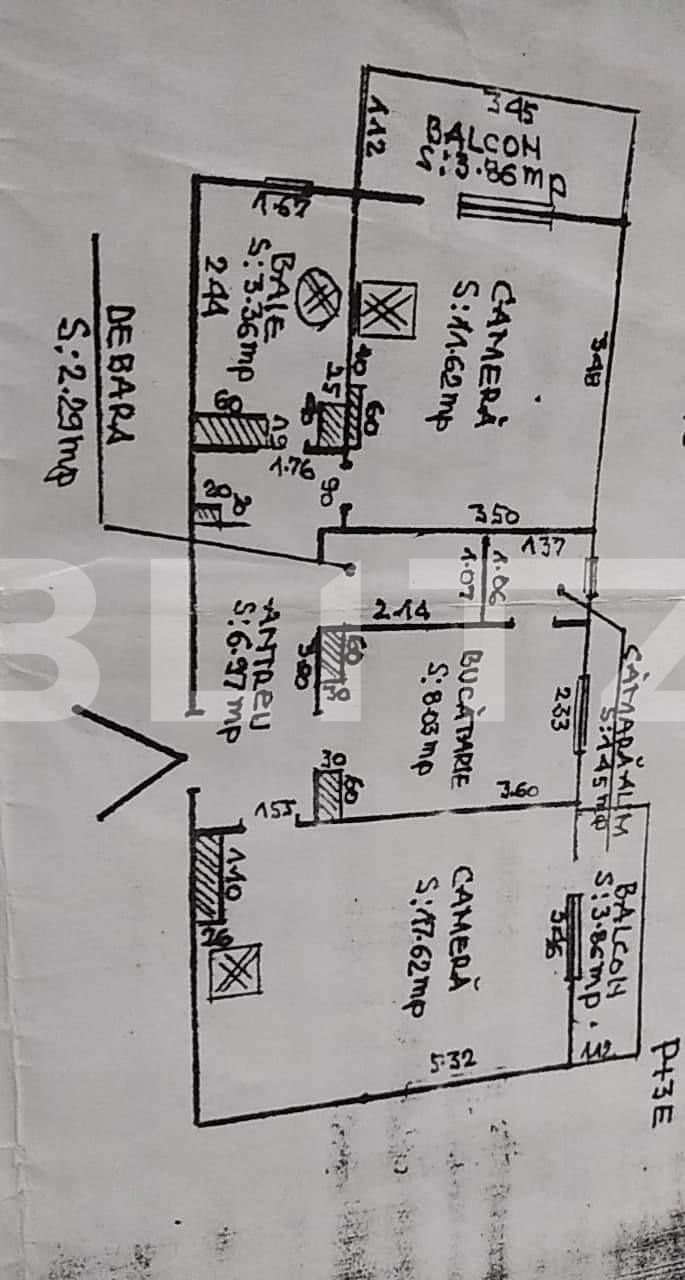 3.45
BALCON
3.86mp
1.12
1.67
BAIE
S:3.36mp
2.44
CAMERĂ
S:11.62mp
3.48
60
1.76
90
3.50
1.37
1.06
1.07
2.14
DEBARA
S:2.29mp
ANTREU
S:6.97mp
60
3.80
BUCĂTARIE
S:8.03mp
2.33
CĂMARĂ ALIM
S:1.45mp
30
60
3.60
1.55
1.10
CAMERĂ
S:17.62mp
5.32
BALCON
S:3.86mp.
3.45
1.12
P+3E
BLITZ